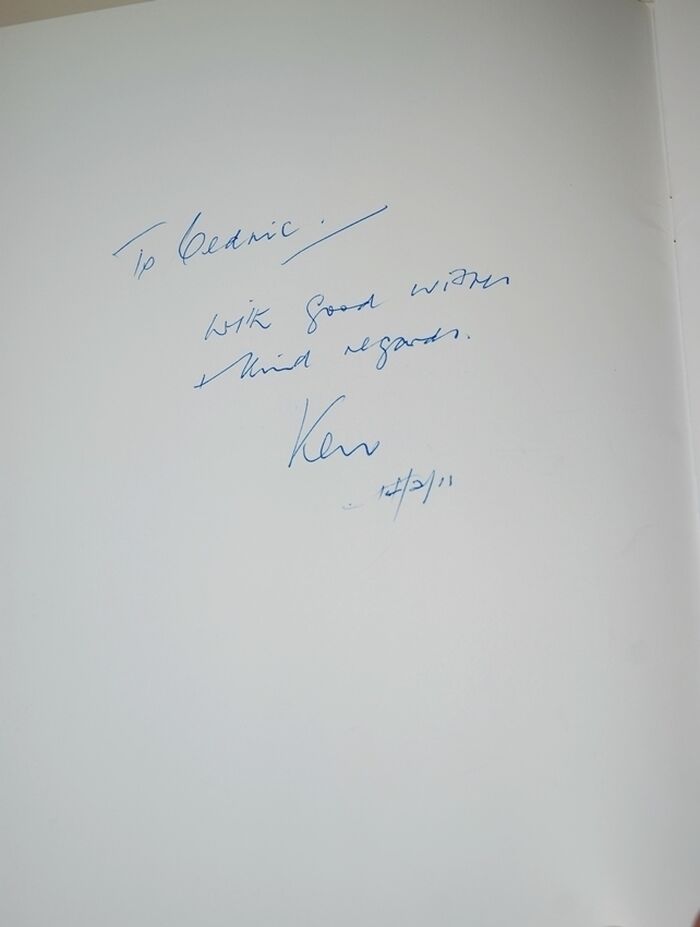 To Cedric.
With good wishes
+ kind regards.
Ken
14/2/11